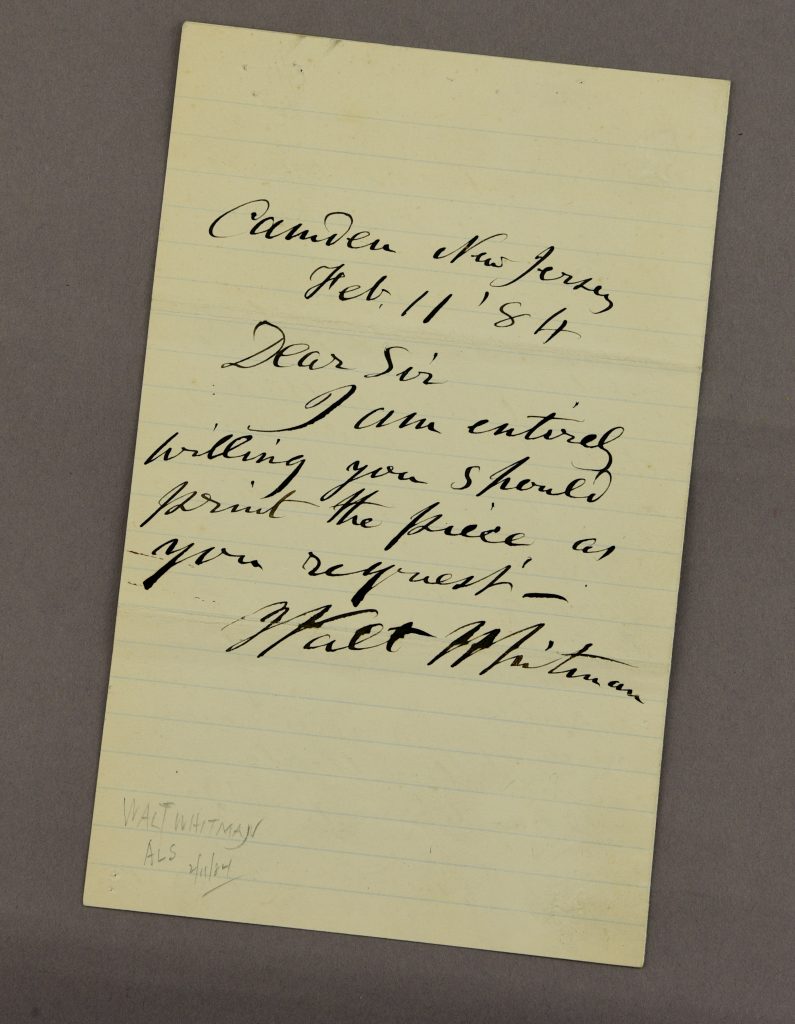 Camden New Jersey
Feb. 11 '84
Dear Sir
I am entirely
willing you should
print the piece as
you request —
Walt Whitman
WALT WHITMAN
ALS
2/11/84